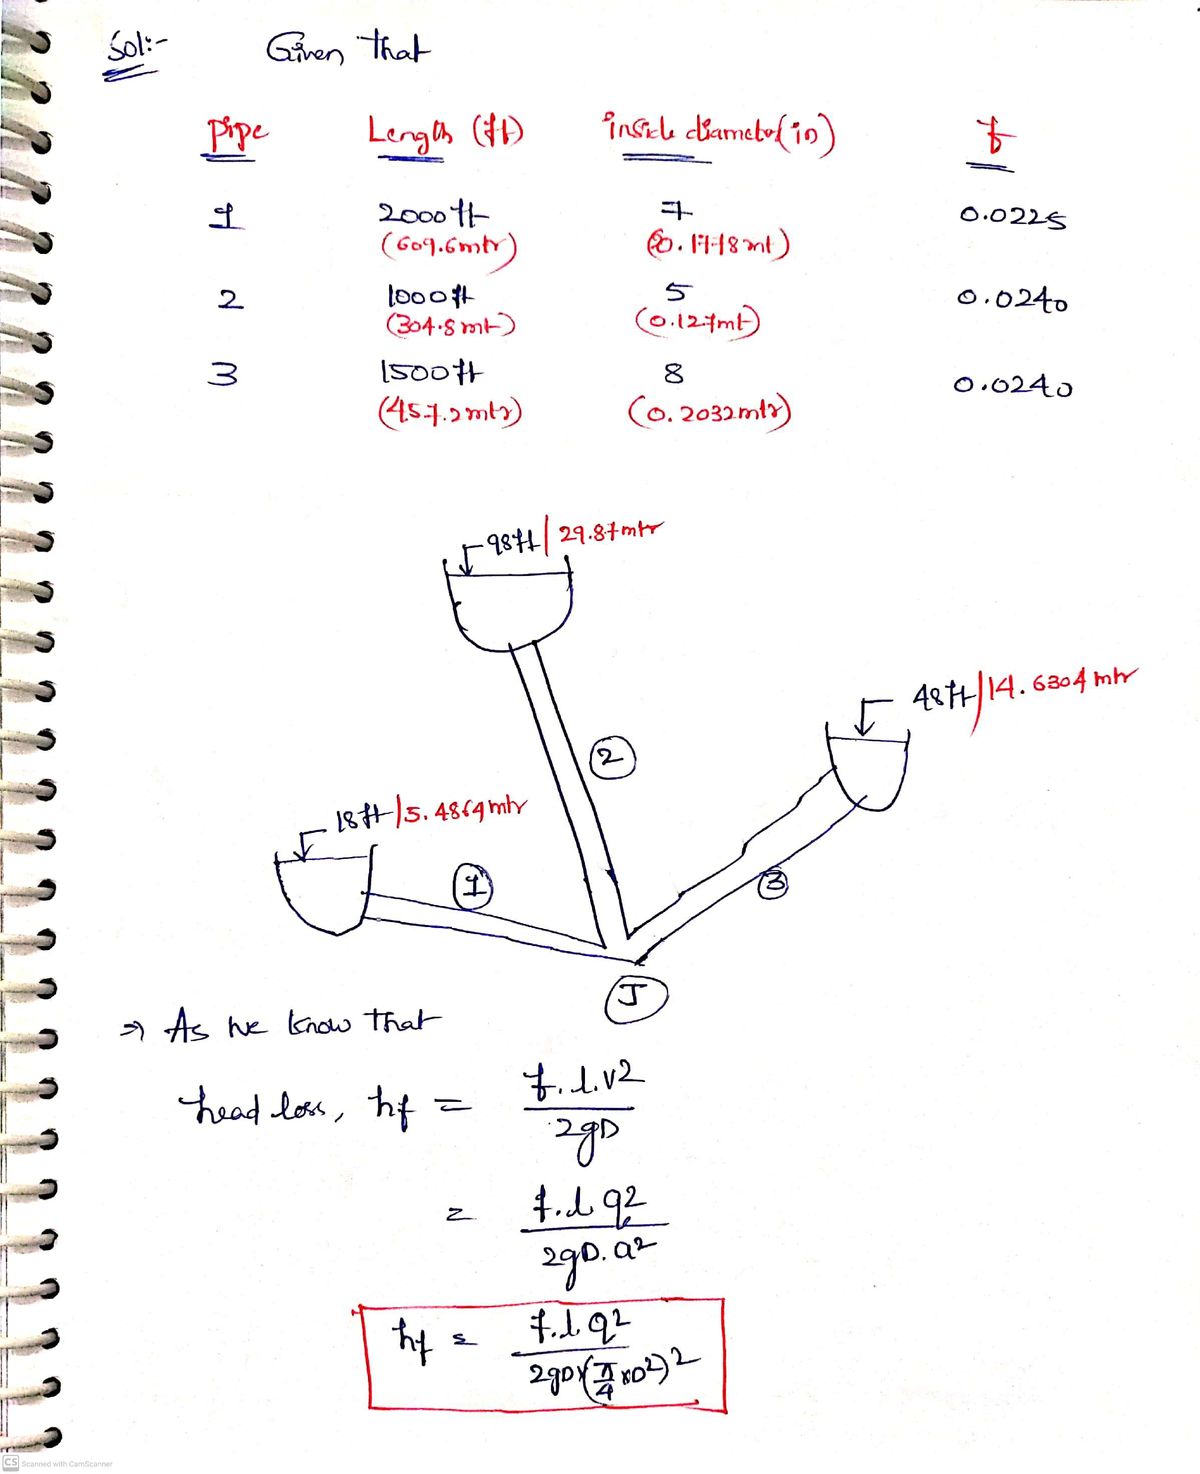 Sol:- Given that
Pipe Length (ft) inside diameter (in) f
1 2000ft 7 0.0225
(609.6mtr) (0.1778mt)
2 1000ft 5 0.0240
(304.8mt) (0.127mt)
3 1500ft 8 0.0240
(457.2mtr) (0.2032mtr)
98ft/29.87mtr
48ft/14.6304mtr
2
18ft/5.4864mtr
1
3
J
⇒ As we know that
head loss, hf = f.l.v2 / 2gD
= f.l.q2 / 2gD.a2
hf = f.l.q2 / 2gD×(π/4×D2)2
CS Scanned with CamScanner